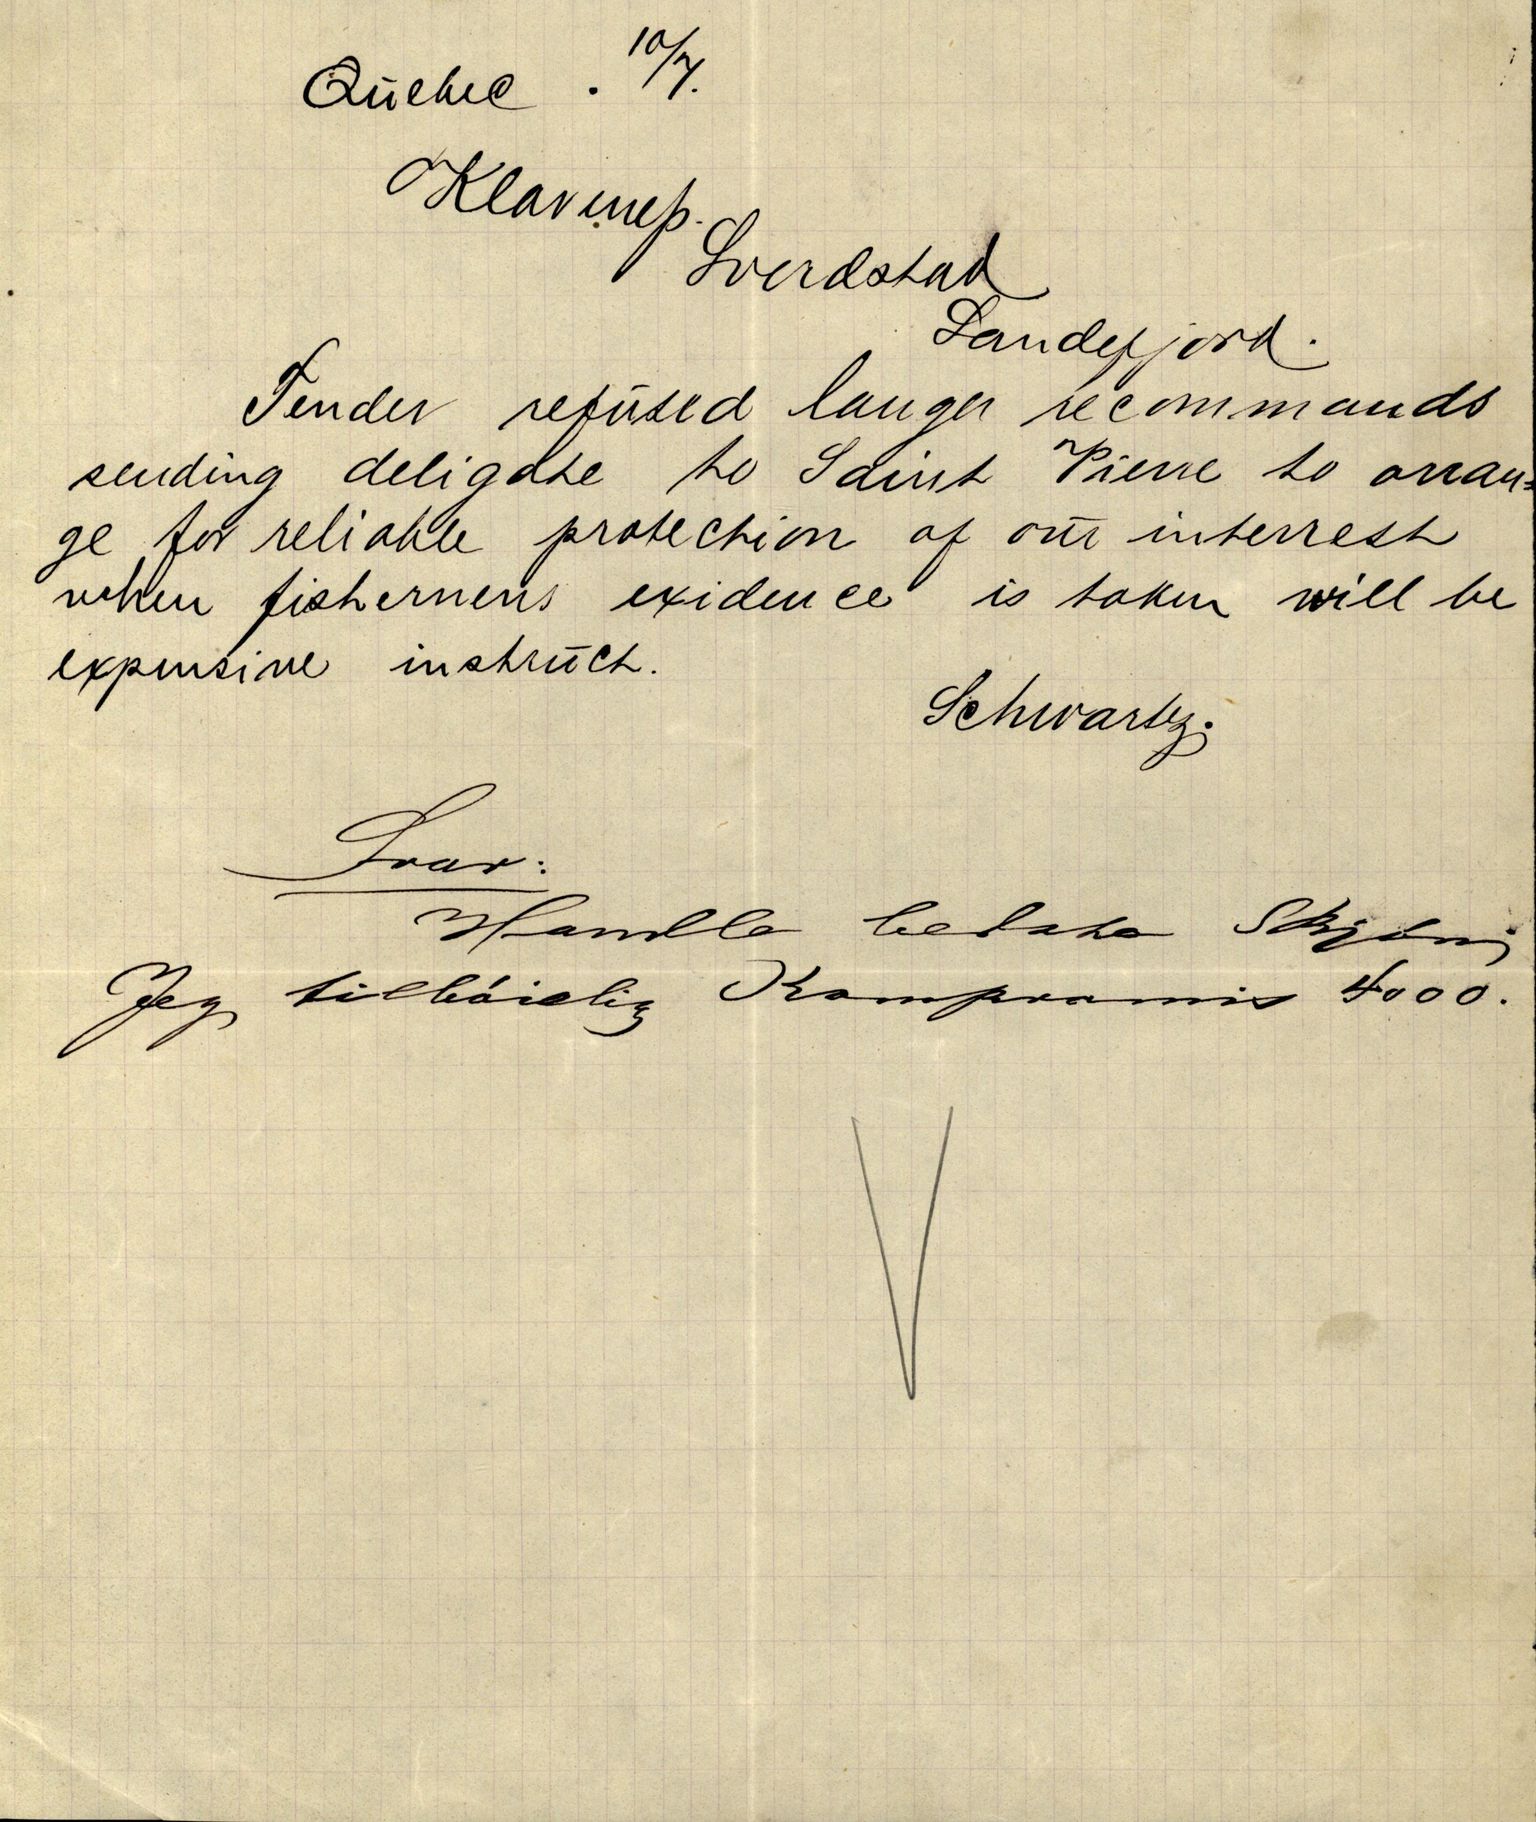 Quebec . 10/7.
Klavenes.
Sverdstad
Sandefjord.
Tender refused langer recommands
sending deligate to Saint Pierre to arran=
ge for reliable protection of our interrest
when fishermens exidence is taken will be
expensive instruct.
Schwartz.
Svar:
Handle bedste Skjøn;
Jeg tilbøielig Kompromis 4000.